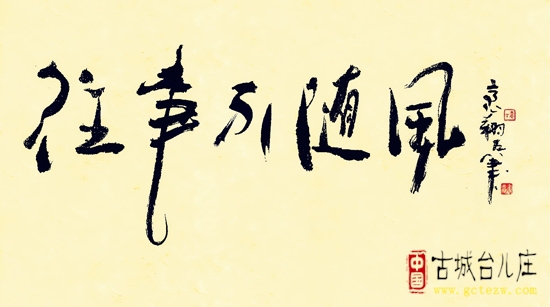 往事引随風
中国
古城台儿庄
www.gctezw.com